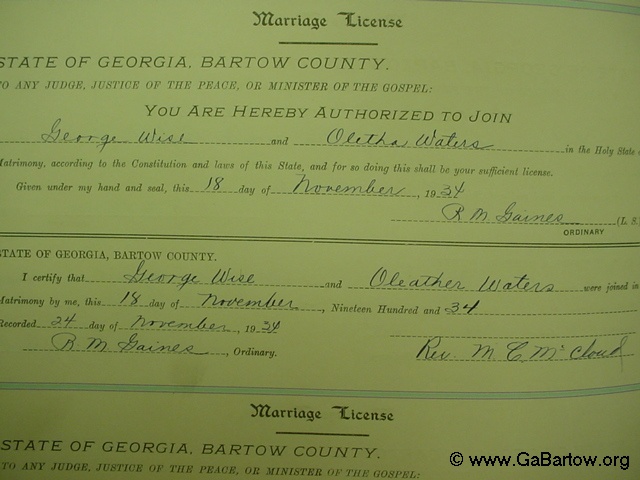 Marriage License
STATE OF GEORGIA, BARTOW COUNTY.
TO ANY JUDGE, JUSTICE OF THE PEACE, OR MINISTER OF THE GOSPEL:
YOU ARE HEREBY AUTHORIZED TO JOIN
George Wise and Oletha Waters in the Holy State
Matrimony, according to the Constitution and laws of this State, and for so doing this shall be your sufficient license.
Given under my hand and seal, this 18 day of November, 1934
R M Gaines (L. S.
ORDINARY
STATE OF GEORGIA, BARTOW COUNTY.
I certify that George Wise and Oleather Waters were joined in
Matrimony by me, this 18 day of November, Nineteen Hundred and 34
Recorded 24 day of November, 1934
R M Gaines, Ordinary. Rev. M C McCloud
Marriage License
STATE OF GEORGIA, BARTOW COUNTY.
TO ANY JUDGE, JUSTICE OF THE PEACE, OR MINISTER OF THE GOSPEL:
© www.GaBartow.org